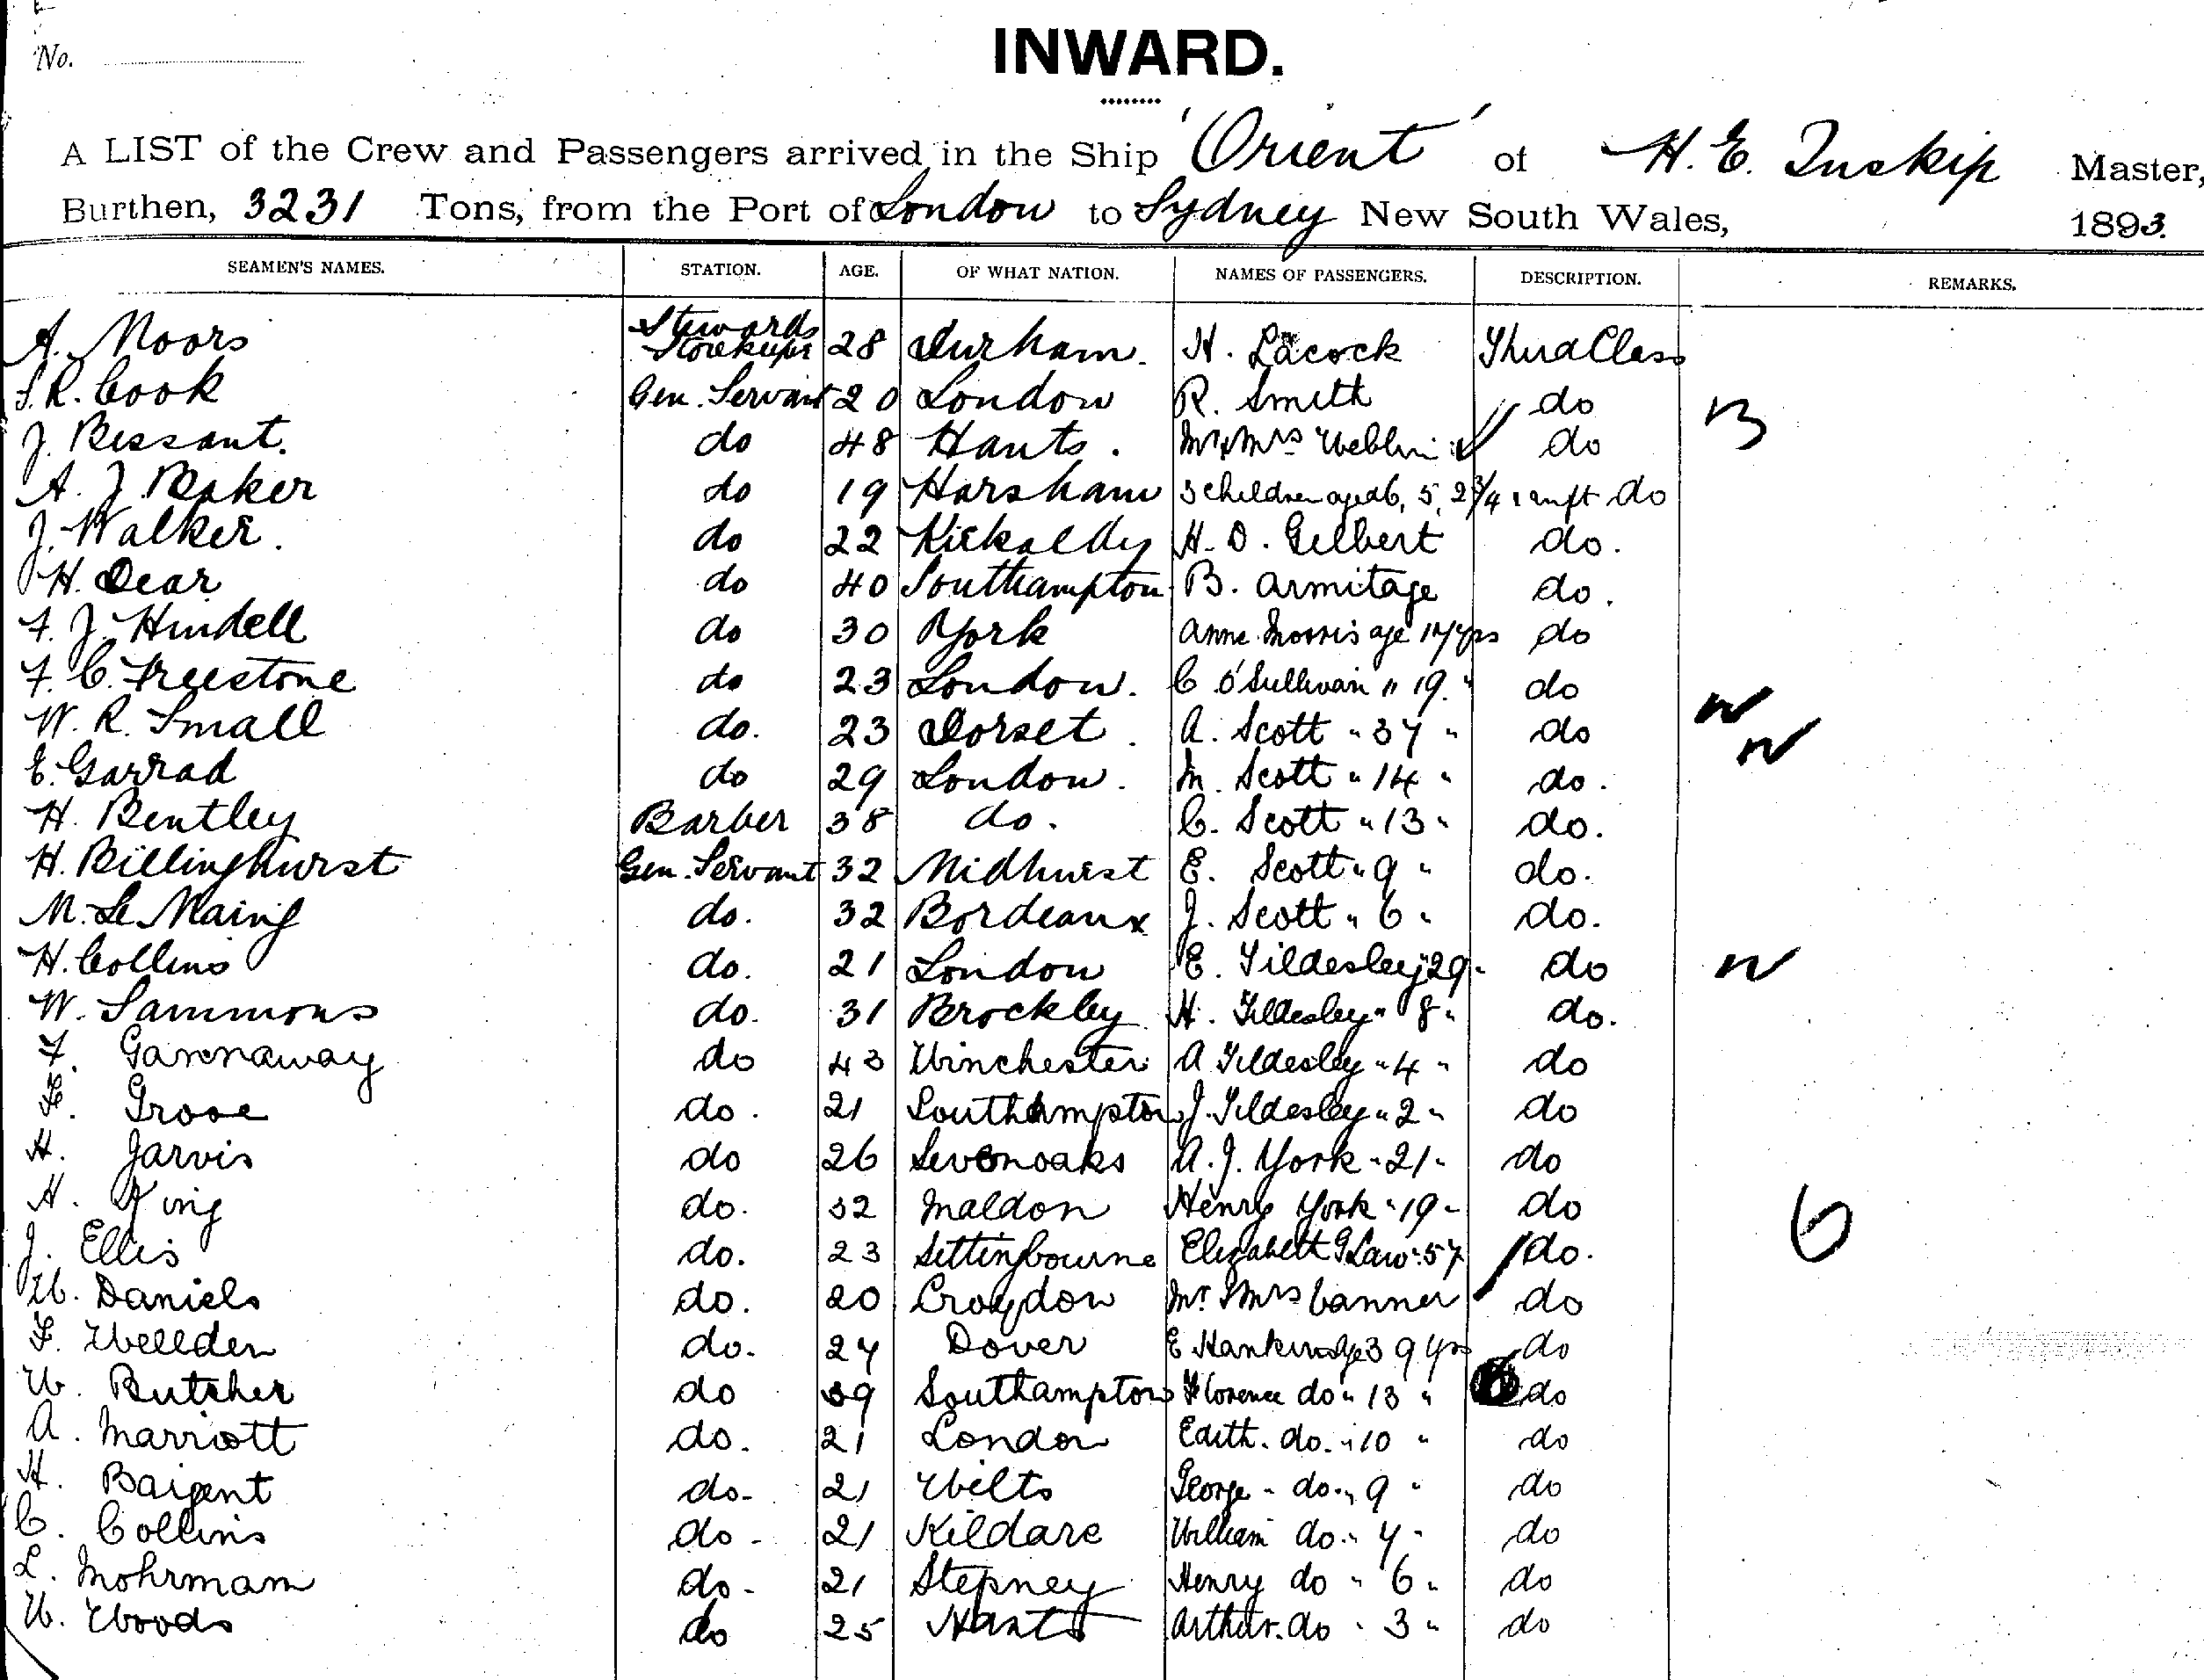 No.
INWARD.
A LIST of the Crew and Passengers arrived in the Ship 'Orient' of H. E. Inskip Master,
Burthen, 3231 Tons, from the Port of London to Sydney New South Wales, 1893.
SEAMEN'S NAMES. STATION. AGE. OF WHAT NATION. NAMES OF PASSENGERS. DESCRIPTION. REMARKS.
A. Moors Stewards Storekeeper 28 Durham. H. Lacock Third Class
S. R. Cook Gen. Servant 20 London R. Smith do
J. Bessant. do 48 Hants. Mr & Mrs do B
A. J. Baker do 19 Horsham 3 children aged 6, 5, 2 3/4 & inft do
J. Walker. do 22 Kirkaldy H. D. Gilbert do.
H. Dear do 40 Southampton B. Armitage do.
F. J. Hindell do 30 York Anne Morris age 17 yrs do
F. C. Freestone do 23 London. C O'Sullivan " 19 " do
W. R. Small do. 23 Dorset. A. Scott " 37 " do
E. Garrad do 29 London. M. Scott " 14 " do.
H. Bentley Barber 38 do. C. Scott " 13 " do.
H. Billinghurst Gen. Servant 32 Midhurst E. Scott " 9 " do.
M. Le do. 32 Bordeaux J. Scott " 6 " do.
H. Collins do. 21 London E. Tildesley " 29 " do
W. Sammons do. 31 Brockley H. Tildesley " 8 " do.
F. Gannaway do 43 Winchester A Tildesley " 4 " do
F. Grose do. 21 Southampton J. Tildesley " 2 " do
H. Jarvis do 26 Sevenoaks A. J. York " 21 " do
H. King do. 32 Maldon Henry York " 19 " do
J. Ellis do. 23 Sittingbourne Elizabeth G Law " 57 do. 6
W. Daniels do. 20 Croydon Mr & Mrs Canner do
F. Wellden do. 24 Dover E Hankin age 39 yrs do
W. Butcher do 39 Southampton Florence do " 13 " do
A. Marriott do. 21 London Edith. do. " 10 " do
H. Baigent do. 21 Wilts George do " 9 " do
C. Collins do 21 Kildare William do " 7 " do
L. Mohrmam do 21 Stepney Henry do " 6 " do
W. Woods do 25 Hants Arthur. do " 3 " do